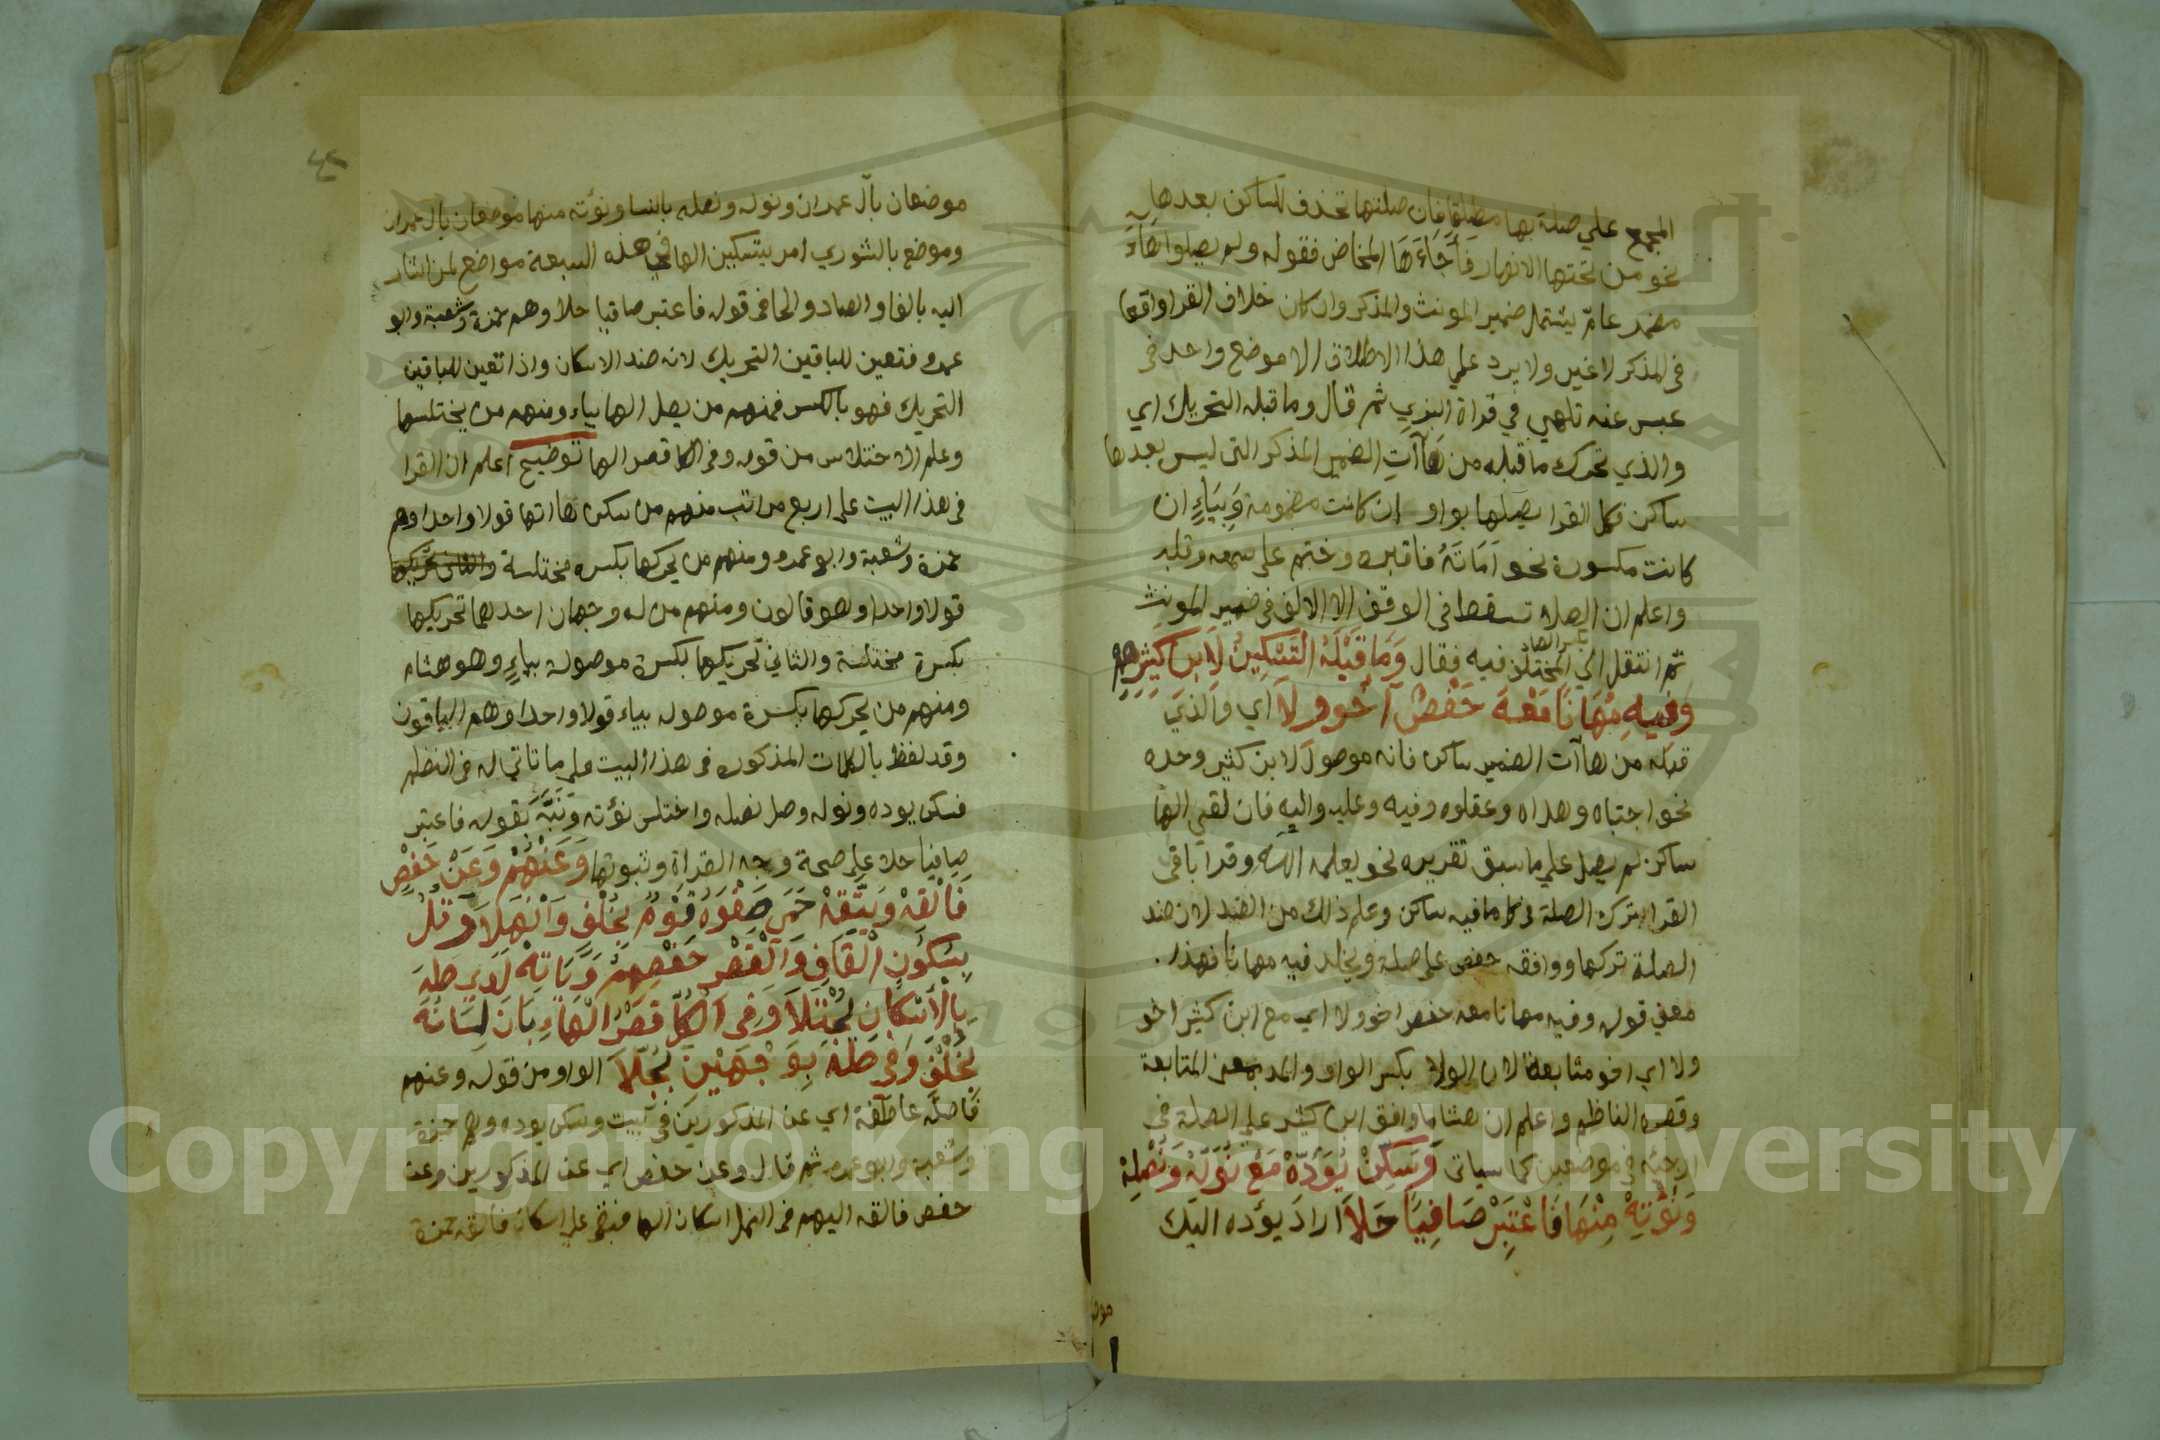 المجمع علي صلة بها مطلقا فان صلتها تحذف للساكن بعدها
نحو من تحتها الانهار فأجاءها المخاض فقوله ولم يصلوا هاء
مضمر عام يشتمل ضمير المونث والمذكر وان كان خلاف القرا واقعا
في المذكر لا غير ولا يرد علي هذا الاطلاق الا موضع واحد في
عبس عنه تلهي في قراة البزي ثم قال وما قبله التحريك اي
والذي تحرك ما قبله من هاآت الضمير المذكر التي ليس بعدها
ساكن فكل القرا يصلها بواو إن كانت مضمومة وبياء ان
كانت مكسورة نحو أماته فاقبره وختم على سمعه وقلبه
واعلم ان الصلة تسقط في الوقف الا الالف في ضمير المونث
ثم انتقل الي المختلف فيه فقال وَمَا قَبْلَهُ التَّسْكِينُ لِابْنِ كَثِيرِهِمْ
وَفِيهِ مُهَانًا مَعْهُ حَفْصٌ أَخُو وِلَا أي والذي
قبله من هاآت الضمير ساكن فانه موصول لابن كثير وحده
نحو اجتباه وهداه وعقلوه وفيه وعليه واليه فان لقي الها
ساكن لم يصل علي ما سبق تقريره نحو يعلمه الله وقرا باقي
القرا بترك الصلة في كل ما فيه ساكن وعلم ذلك من الضد لان ضد
الصلة تركها ووافقه حفص على صلة ويخلد فيه مهانا فهذا
معني قوله وفيه مهانا معه حفص اخو ولا اي مع ابن كثير اخو
ولا اي اخو متابعة لان الولا بكسر الواو والمد بمعني المتابعة
وقصره الناظم واعلم ان هشاما وافق ابن كثير علي الصلة في
ارجئه في موضعين كما سياتي وَسَكِّنْ يُؤَدِّهْ مَعْ نُوَلِّهْ وَنُصْلِهْ
وَنُؤْتِهْ مِنْهَا فَاعْتَبِرْ صَافِيًا حَلَا اراد يؤده اليك
موضعان بآل عمران ونوله ونصله بالنسا ونؤته منها موضعان بال عمران
وموضع بالشوري امر بتسكين الها في هذه السبعة مواضع لمن اشار
اليه بالفا والصاد والحا في قوله فاعتبر صافيا حلا وهم حمزة وشعبة وابو
عمرو فتعين للباقين التحريك لانه ضد الاسكان واذا تعين للباقين
التحريك فهو بالكسر فمنهم من يصل الها بياء ومنهم من يختلسها
وعلم الاختلاس من قوله وفي الكل قصر الها توضيح اعلم ان القرا
في هذا البيت على اربع مراتب منهم من سكن هاءاتها قولا واحدا وهم
حمزة وشعبة وابو عمرو ومنهم من يحركها بكسره مختلسة والثاني تحريكها
قولا واحدا وهو قالون ومنهم من له وجهان احدهما تحريكها
بكسرة مختلسة والثاني تحريكها بكسرة موصولة بياءٍ وهو هشام
ومنهم من يحركها بكسرة موصوله بياء قولا واحدا وهم الباقون
وقد لفظ بالكلمات المذكوره في هذا البيت على ما تاتي له في النظم
فسكن يوده ونوله وصل نصله واختلس نؤته ونبه بقوله فاعتبر
صافيا حلا علي صحة وجه القراة وثبوتها وَعَنْهُمْ وَعَنْ حَفْصٍ
فَأَلْقِهْ وَيَتَّقِهْ حَمَى صَفْوَهُ قَوْمٌ بِخُلْفٍ وَأَنْهَلَا وَقُلْ
بِسُكُونِ الْقَافِ وَالْقَصْرِ حَفْصُهُمْ وَيَأْتِهْ لَدَى طٰهَ
بِالْأِسْكَانِ يُجْتَلَا وَفِي الْكُلِّ قَصْرُ الْهَاءِ بَانَ لِسَانُهُ
بِخُلْفٍ وَفِي طٰهَ بِوَجْهَيْنِ بُجِّلَا الواو من قوله وعنهم
فاصلة عاطفة اي عن المذكورين في بيت وسكن يوده وهم حمزة
وشعبة وابو عمرو ثم قال وعن حفص اي عن المذكورين وعن
حفص فالقه اليهم في النمل اسكان الها فبقي علي اسكان فالقه حمزة
Copyright © King Saud University
1957